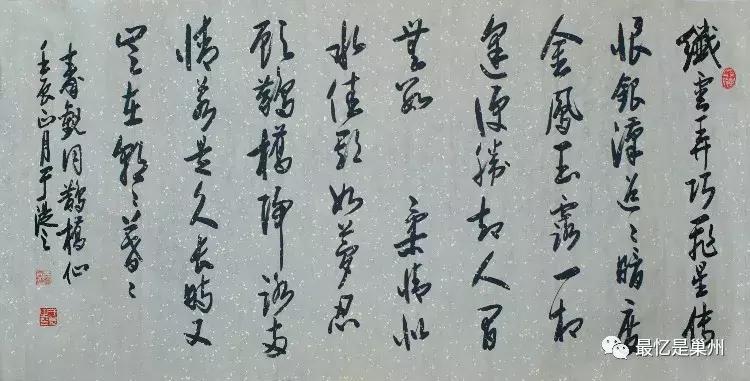 纖雲弄巧飛星傳
恨銀漢迢〻暗度
金鳳玉露一相
逢便勝却人間
無數 柔情似
水佳期如夢忍
顧鵲橋歸路兩
情若是久長時又
豈在朝〻暮〻
秦觀詞鵲橋仙
壬辰正月
最忆是巢州